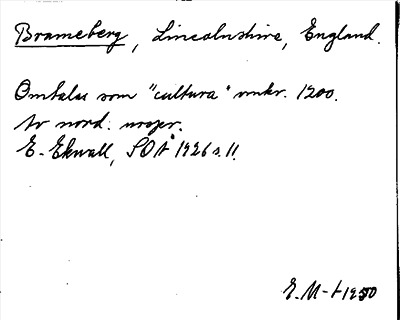 Brameberg, Lincolnshire, England.
Omtales som "cultura" omkr. 1200.
Av nord.
E. Ekwall, SOÅ 1926 s. 11.
E. M-t 1950